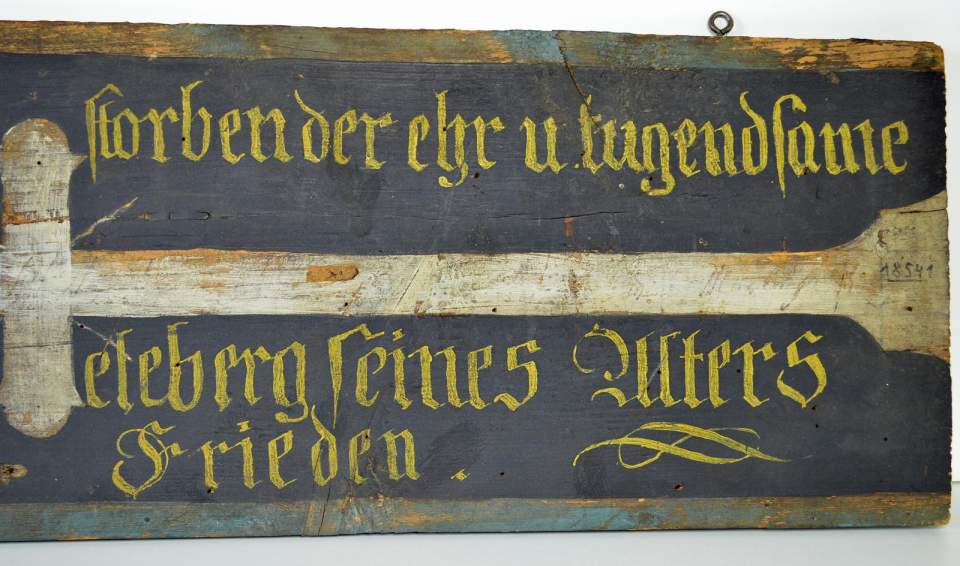 storben der ehr u. tugendsame
18541
eleberg seines Alters
Frieden.